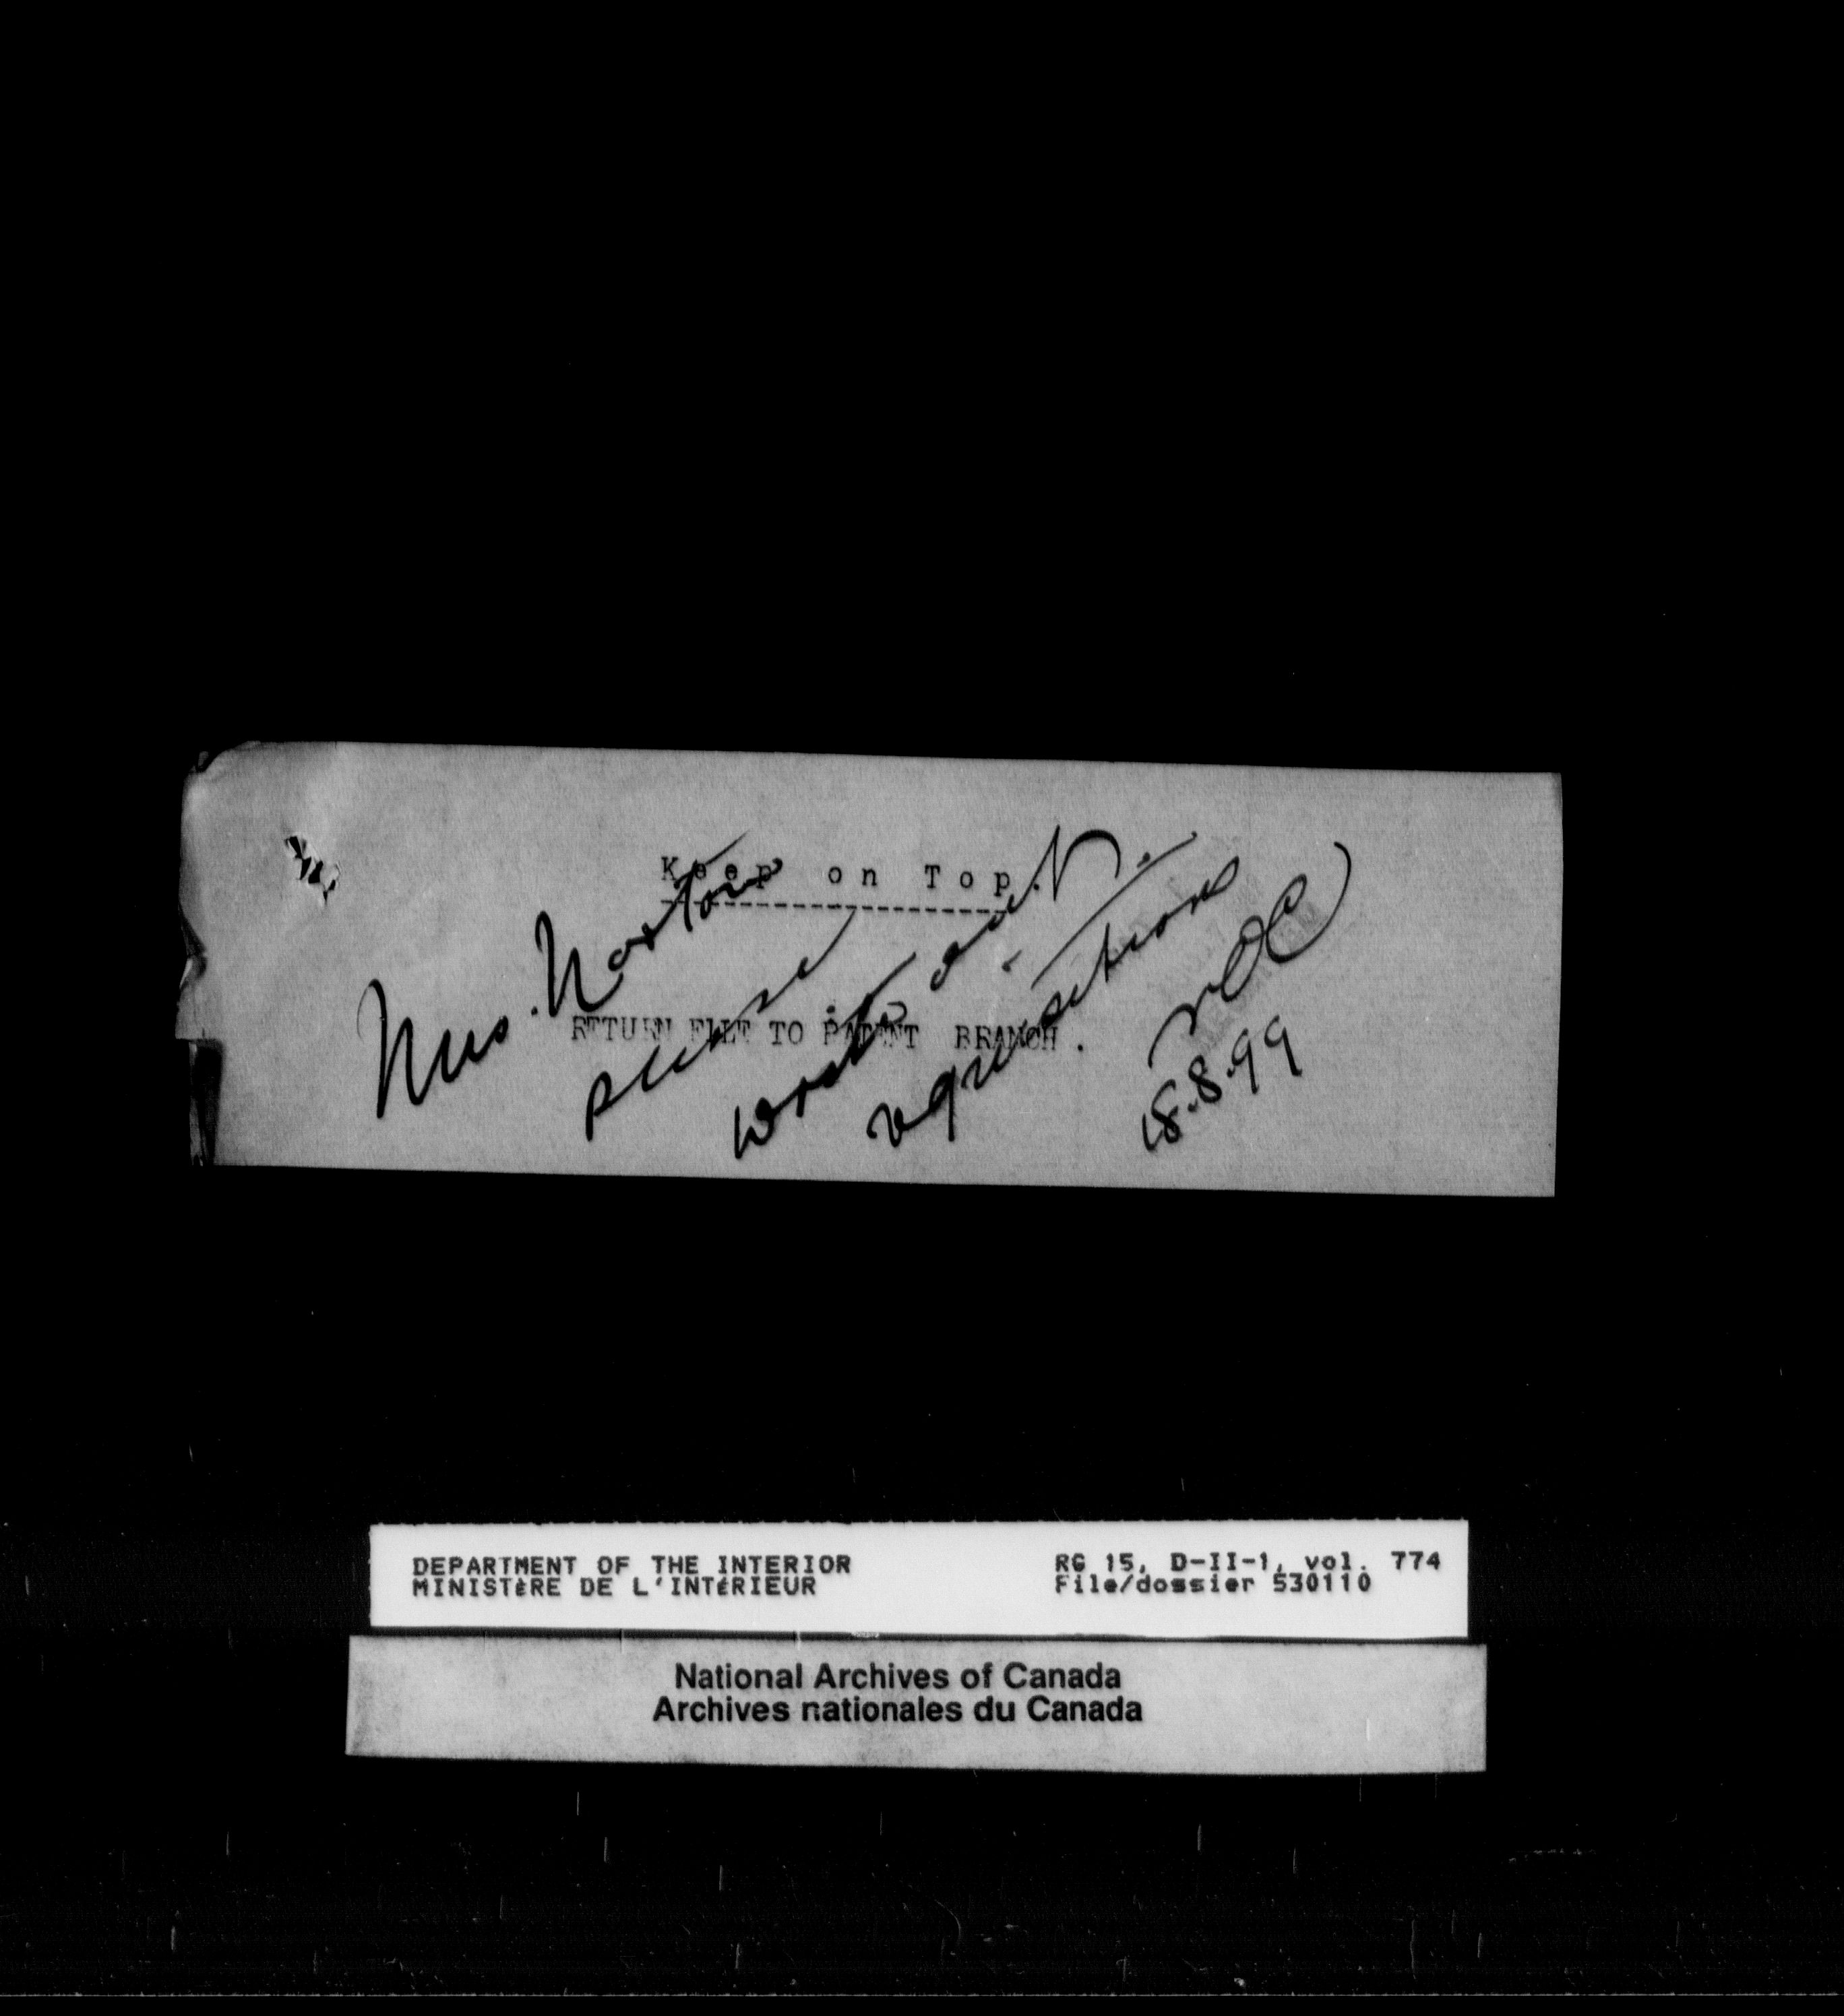 Keep on Top.
RETURN FILE TO PATENT BRANCH.
Mrs. Norton
please
write out
requisitions
18.8.99
DEPARTMENT OF THE INTERIOR
MINISTÈRE DE L'INTÉRIEUR
RG 15, D-II-1, vol. 774
File/dossier 530110
National Archives of Canada
Archives nationales du Canada